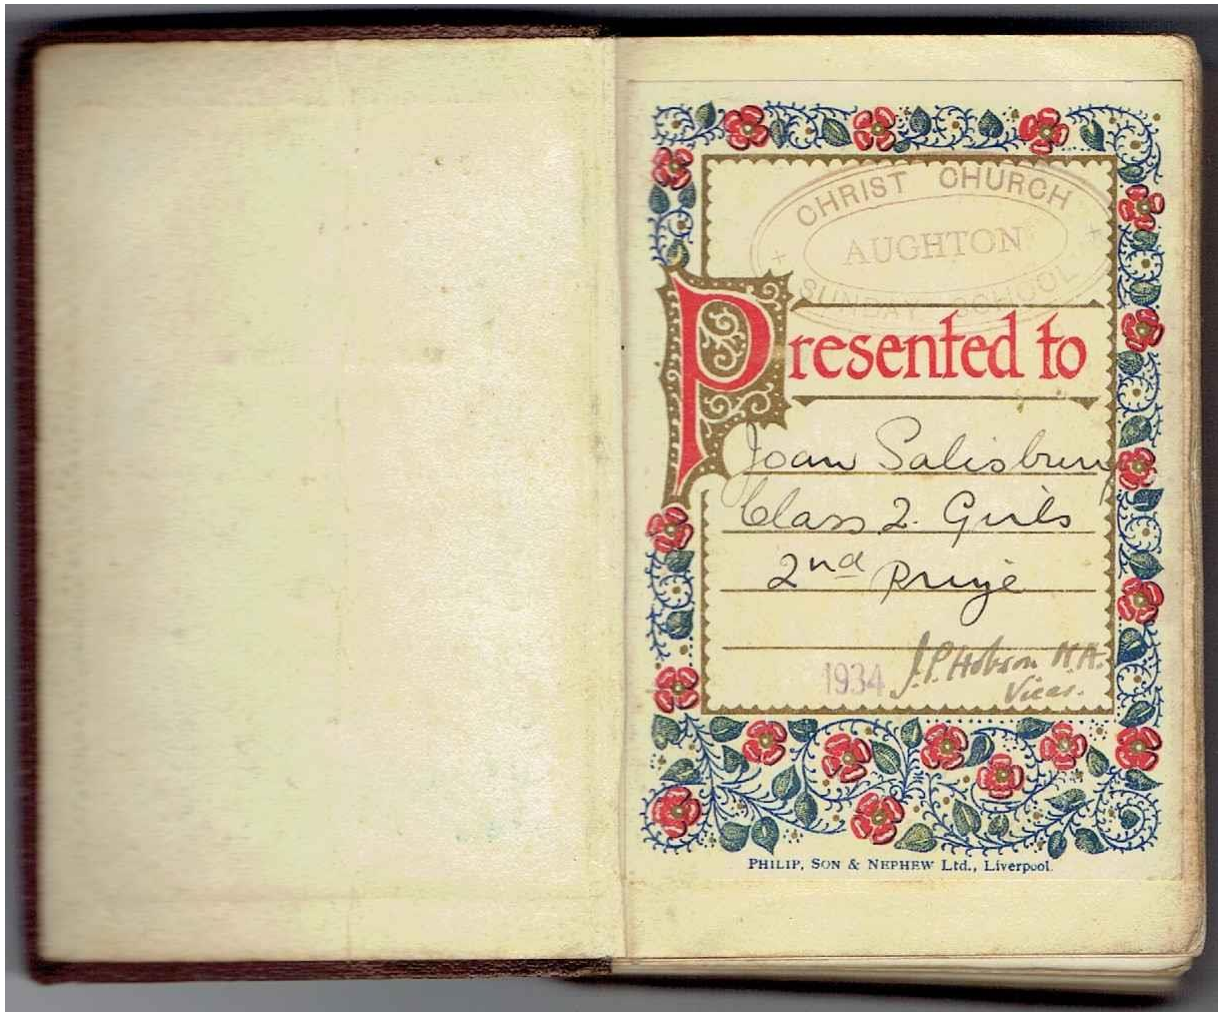 CHRIST CHURCH
AUGHTON
SUNDAY SCHOOL
Presented to
Joan Salisbury
Class 2. Girls
2nd Prize
1934 J.P. Hobson M.A.
Vicar.
PHILIP, SON & NEPHEW Ltd., Liverpool.